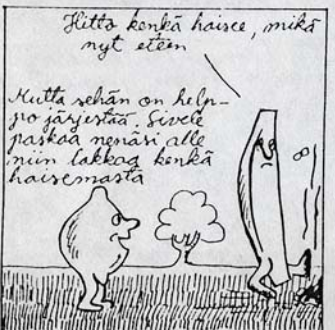 Hitto kenkä haisee, mikä
nyt eteen
Mutta sehän on help-
po järjestää. Sivele
paskaa nenäsi alle
niin lakkaa kenkä
haisemasta